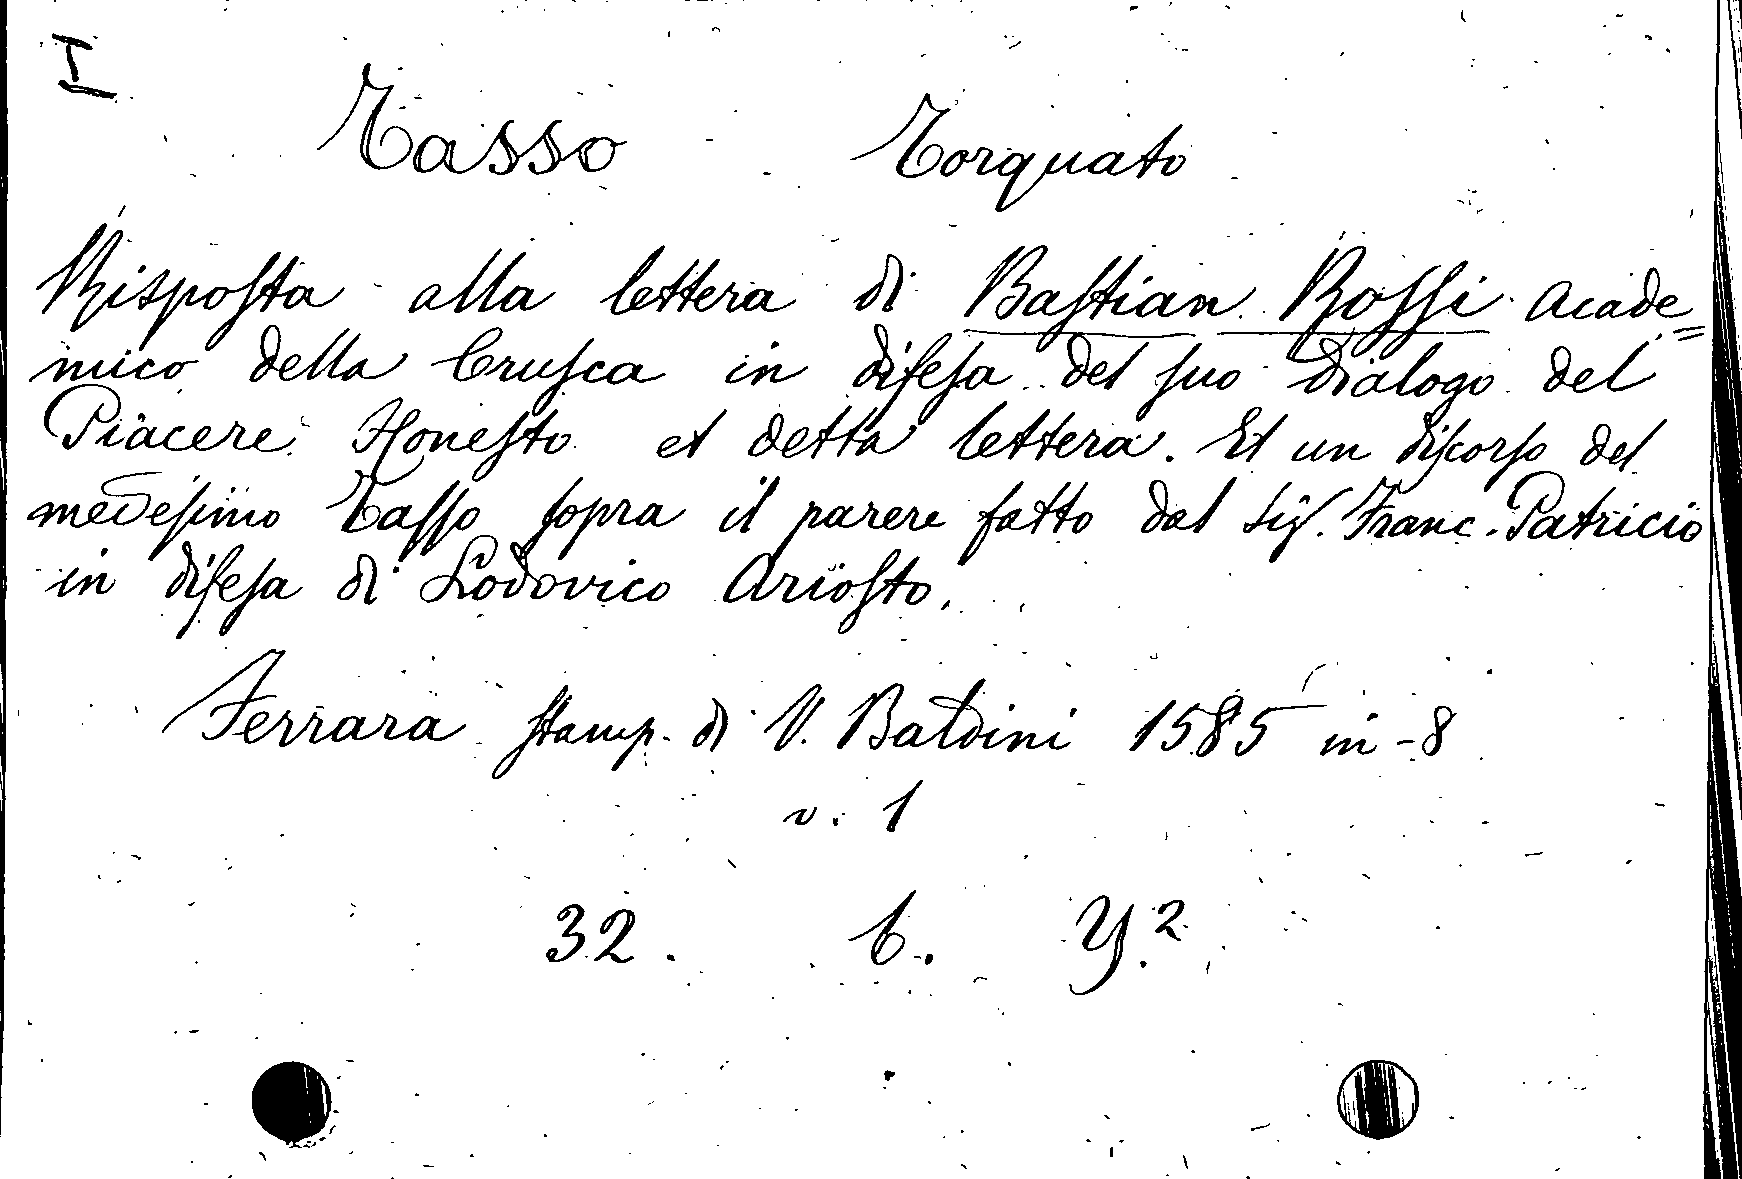 I
Tasso Torquato
Risposta alla lettera di Bastian Rossi Acade=
mico della Crusca in difesa del suo Dialogo del
Piacere Honesto et detta lettera. Et un discorso del
medesimo Tasso sopra il parere fatto dal Sig. Franc. Patricio
in difesa di Lodovico Ariosto.
Ferrara stamp. di V. Baldini 1585 in-8
v. 1
32. b. Y.2